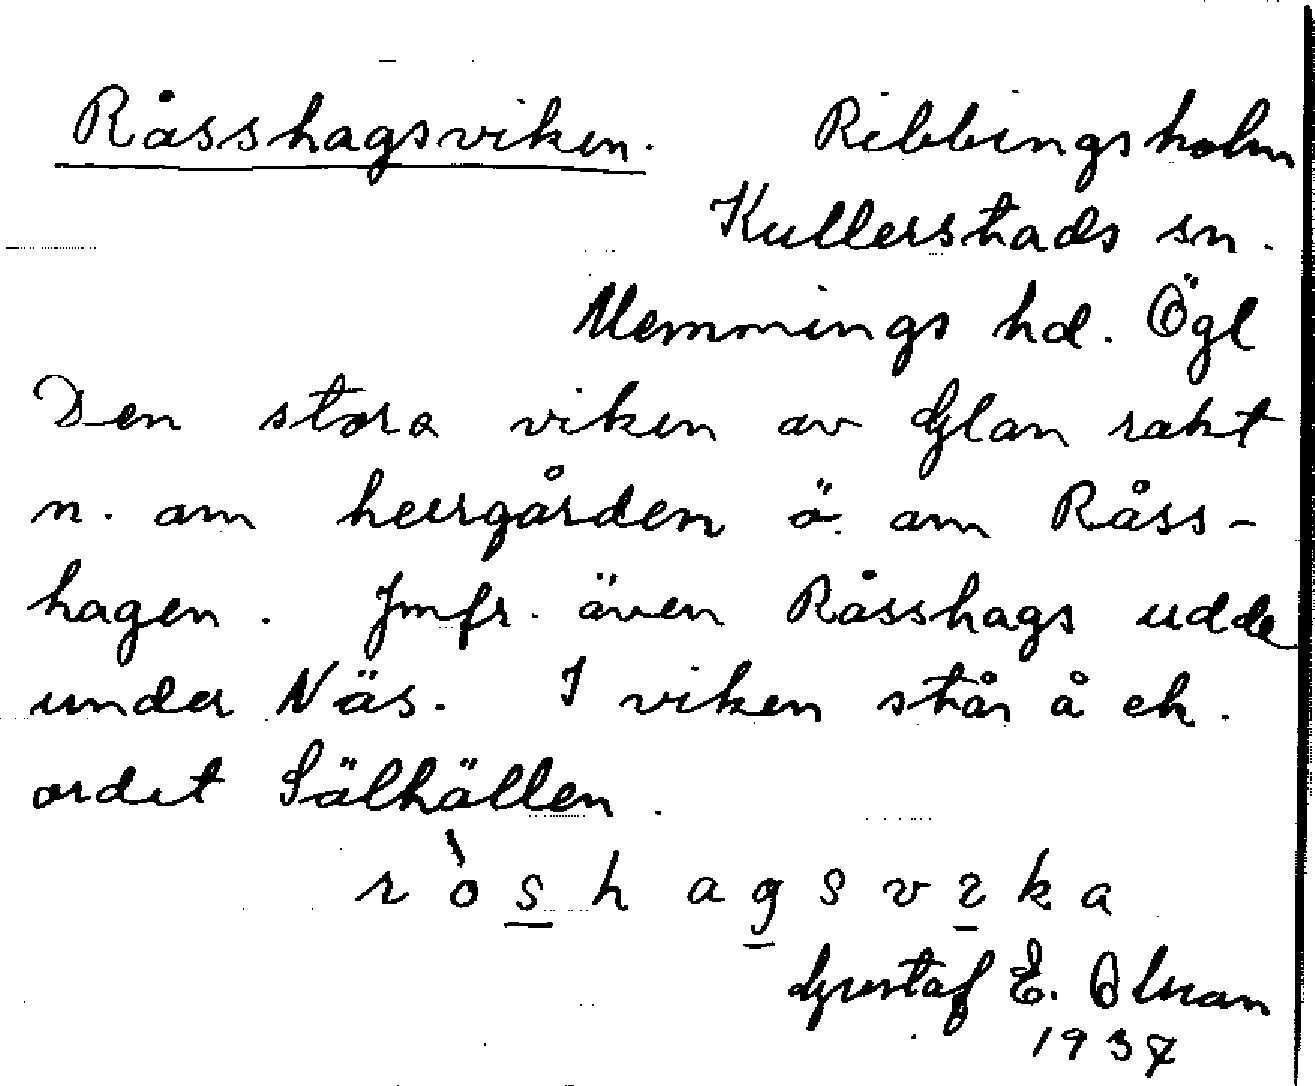 Råsshagsviken. Ribbingsholm
Kullerstads sn.
Memmings hd. Ögl
Den stora viken av Glan rakt
n. om herrgården ö. om Råss-
hagen. Jmfr. även Råsshags udde
under Näs. I viken står å ek.
ordet Sälhällen.
r ò s h a g s v ɩ k a
Gustaf E. Olson
1937